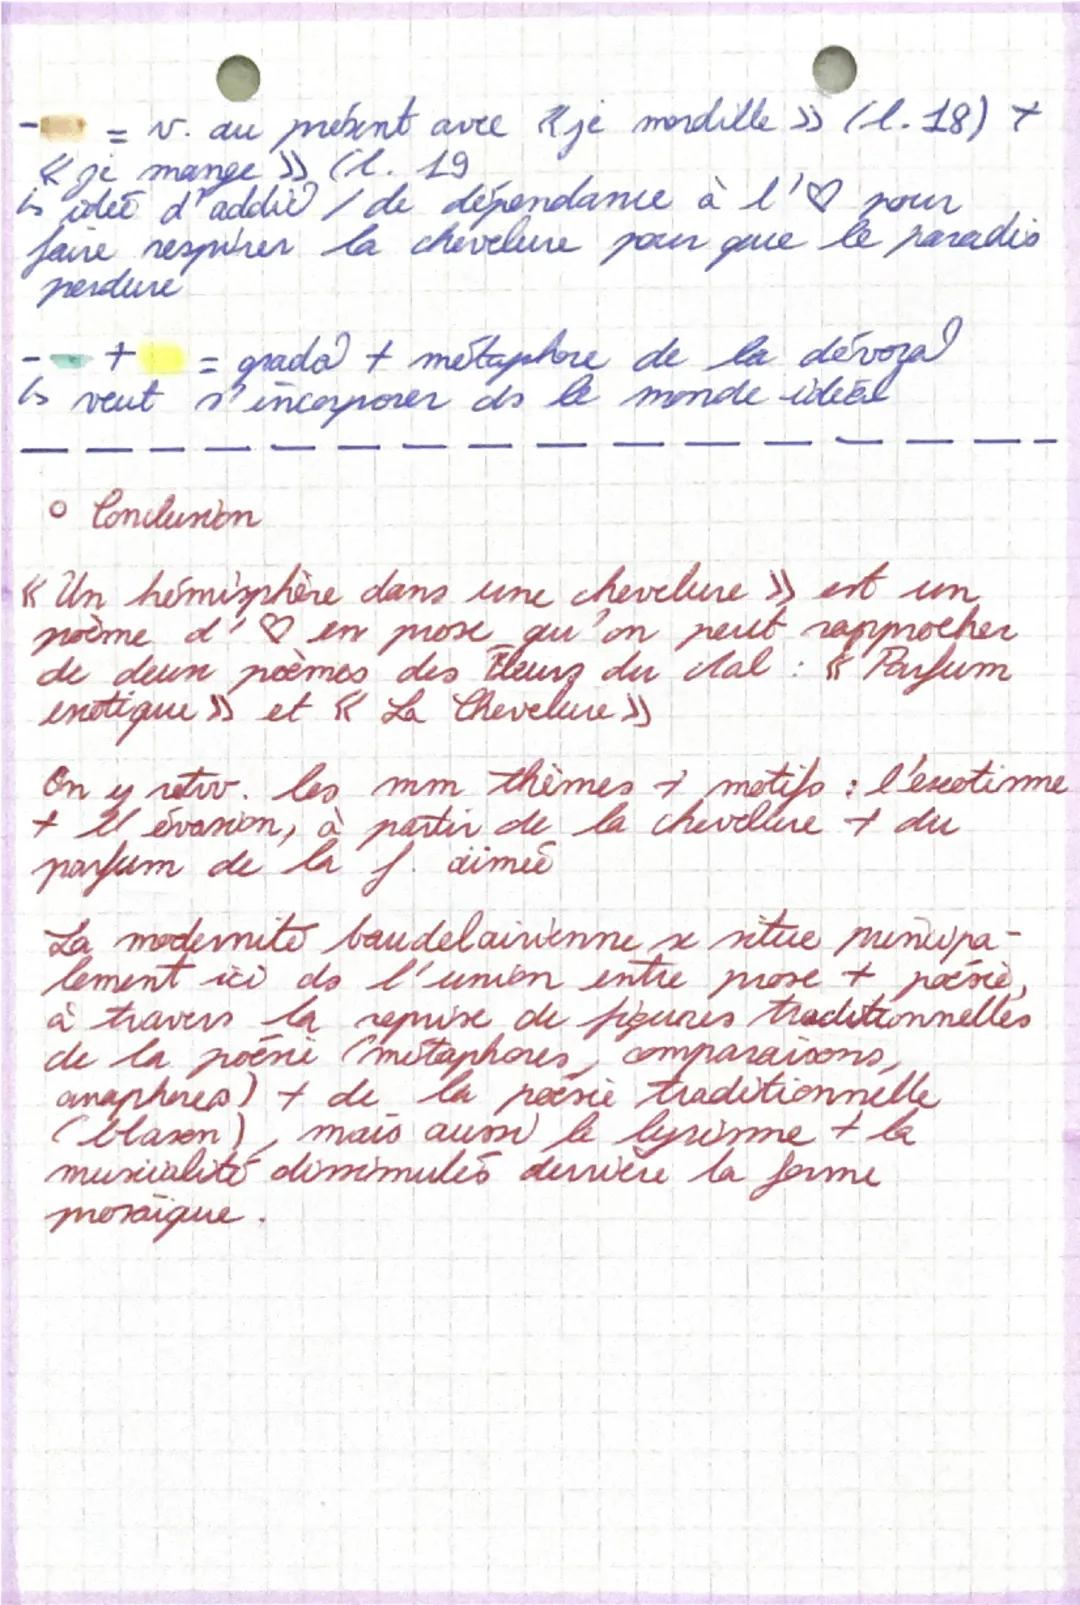 - = v. au présent avec « je mordille » (l. 18) +
« je mange » (l. 19
↳ idée d'addic° / de dépendance à l'♡ pour
faire respirer la chevelure pour que le paradis
perdure
- + = grada° + métaphore de la dévora°
↳ veut s'incorporer ds le monde idéal
o Conclusion
« Un hémisphère dans une chevelure » est un
poème d'♡ en prose qu'on peut rapprocher
de deux poèmes des Fleurs du Mal : « Parfum
exotique » et « La Chevelure »
On y retrv. les mm thèmes + motifs : l'exotisme
+ l'évasion, à partir de la chevelure + du
parfum de la f. aimée
La modernité baudelairienne se situe principa-
lement ici ds l'union entre prose + poésie,
à travers la reprise de figures traditionnelles
de la poésie (métaphores, comparaisons,
anaphores) + de la poésie traditionnelle
(blason), mais aussi le lyrisme + la
musicalité dissimulés derrière la forme
prosaïque.